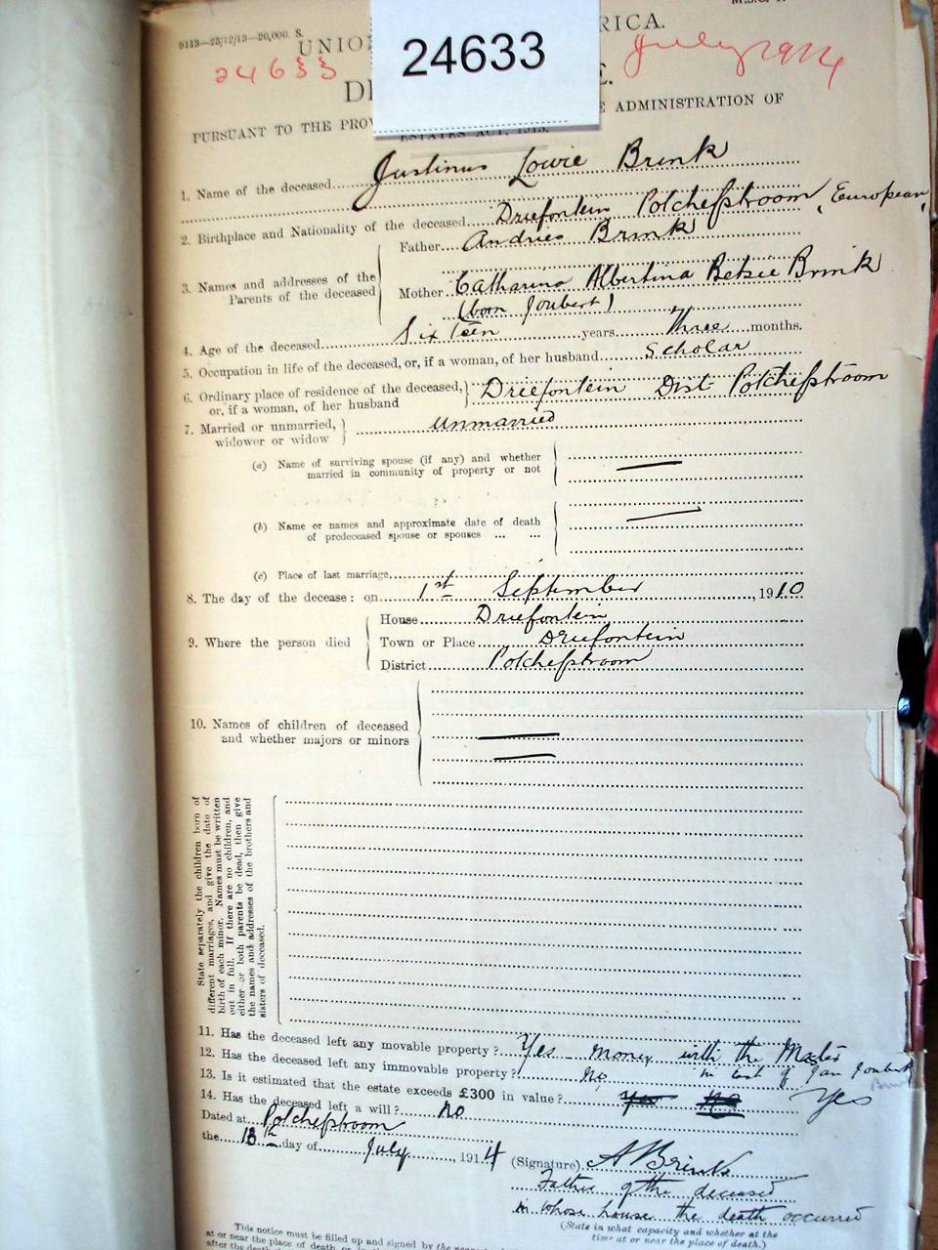 9113—23/12/13—20,000. S.
UNIO RICA.
24633
24633
July 1914
DE E.
PURSUANT TO THE PROV E ADMINISTRATION OF
ESTATES ACT, 1913.
1. Name of the deceased Justinus Lowie Brink
2. Birthplace and Nationality of the deceased Driefontein Potchefstroom, European,
3. Names and addresses of the Parents of the deceased
Father Andries Brink
Mother Catharina Albertina Betsie Brink
(born Joubert)
4. Age of the deceased Sixteen years Three months.
5. Occupation in life of the deceased, or, if a woman, of her husband Scholar
6. Ordinary place of residence of the deceased, or, if a woman, of her husband Driefontein Dist Potchefstroom
7. Married or unmarried, widower or widow Unmarried
(a) Name of surviving spouse (if any) and whether
married in community of property or not
(b) Name or names and approximate date of death
of predeceased spouse or spouses ... ...
(c) Place of last marriage
8. The day of the decease: on 1st September, 1910
9. Where the person died
House Driefontein
Town or Place Driefontein
District Potchefstroom
10. Names of children of deceased
and whether majors or minors
State separately the children born of
different marriages, and give the date of
birth of each minor. Names must be written
out in full. If there are no children, and
either or both parents be dead, then give
the names and addresses of the brothers and
sisters of deceased.
11. Has the deceased left any movable property? Yes – money with the Master
in est of Jan Joubert
Brink
12. Has the deceased left any immovable property? No
13. Is it estimated that the estate exceeds £300 in value? Yes No Yes
14. Has the deceased left a will? No
Dated at Potchefstroom
the 18th day of July, 1914
(Signature) A Brink
Father of the deceased
in whose house the death occurred
(State in what capacity and whether at the
time at or near the place of death.)
This notice must be filled up and signed by the
at or near the place of death
after the death